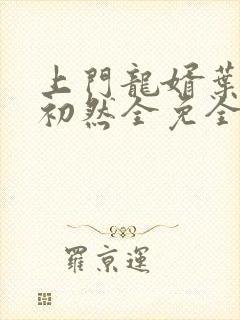 上門龍婿葉
初然全免全
羅京運